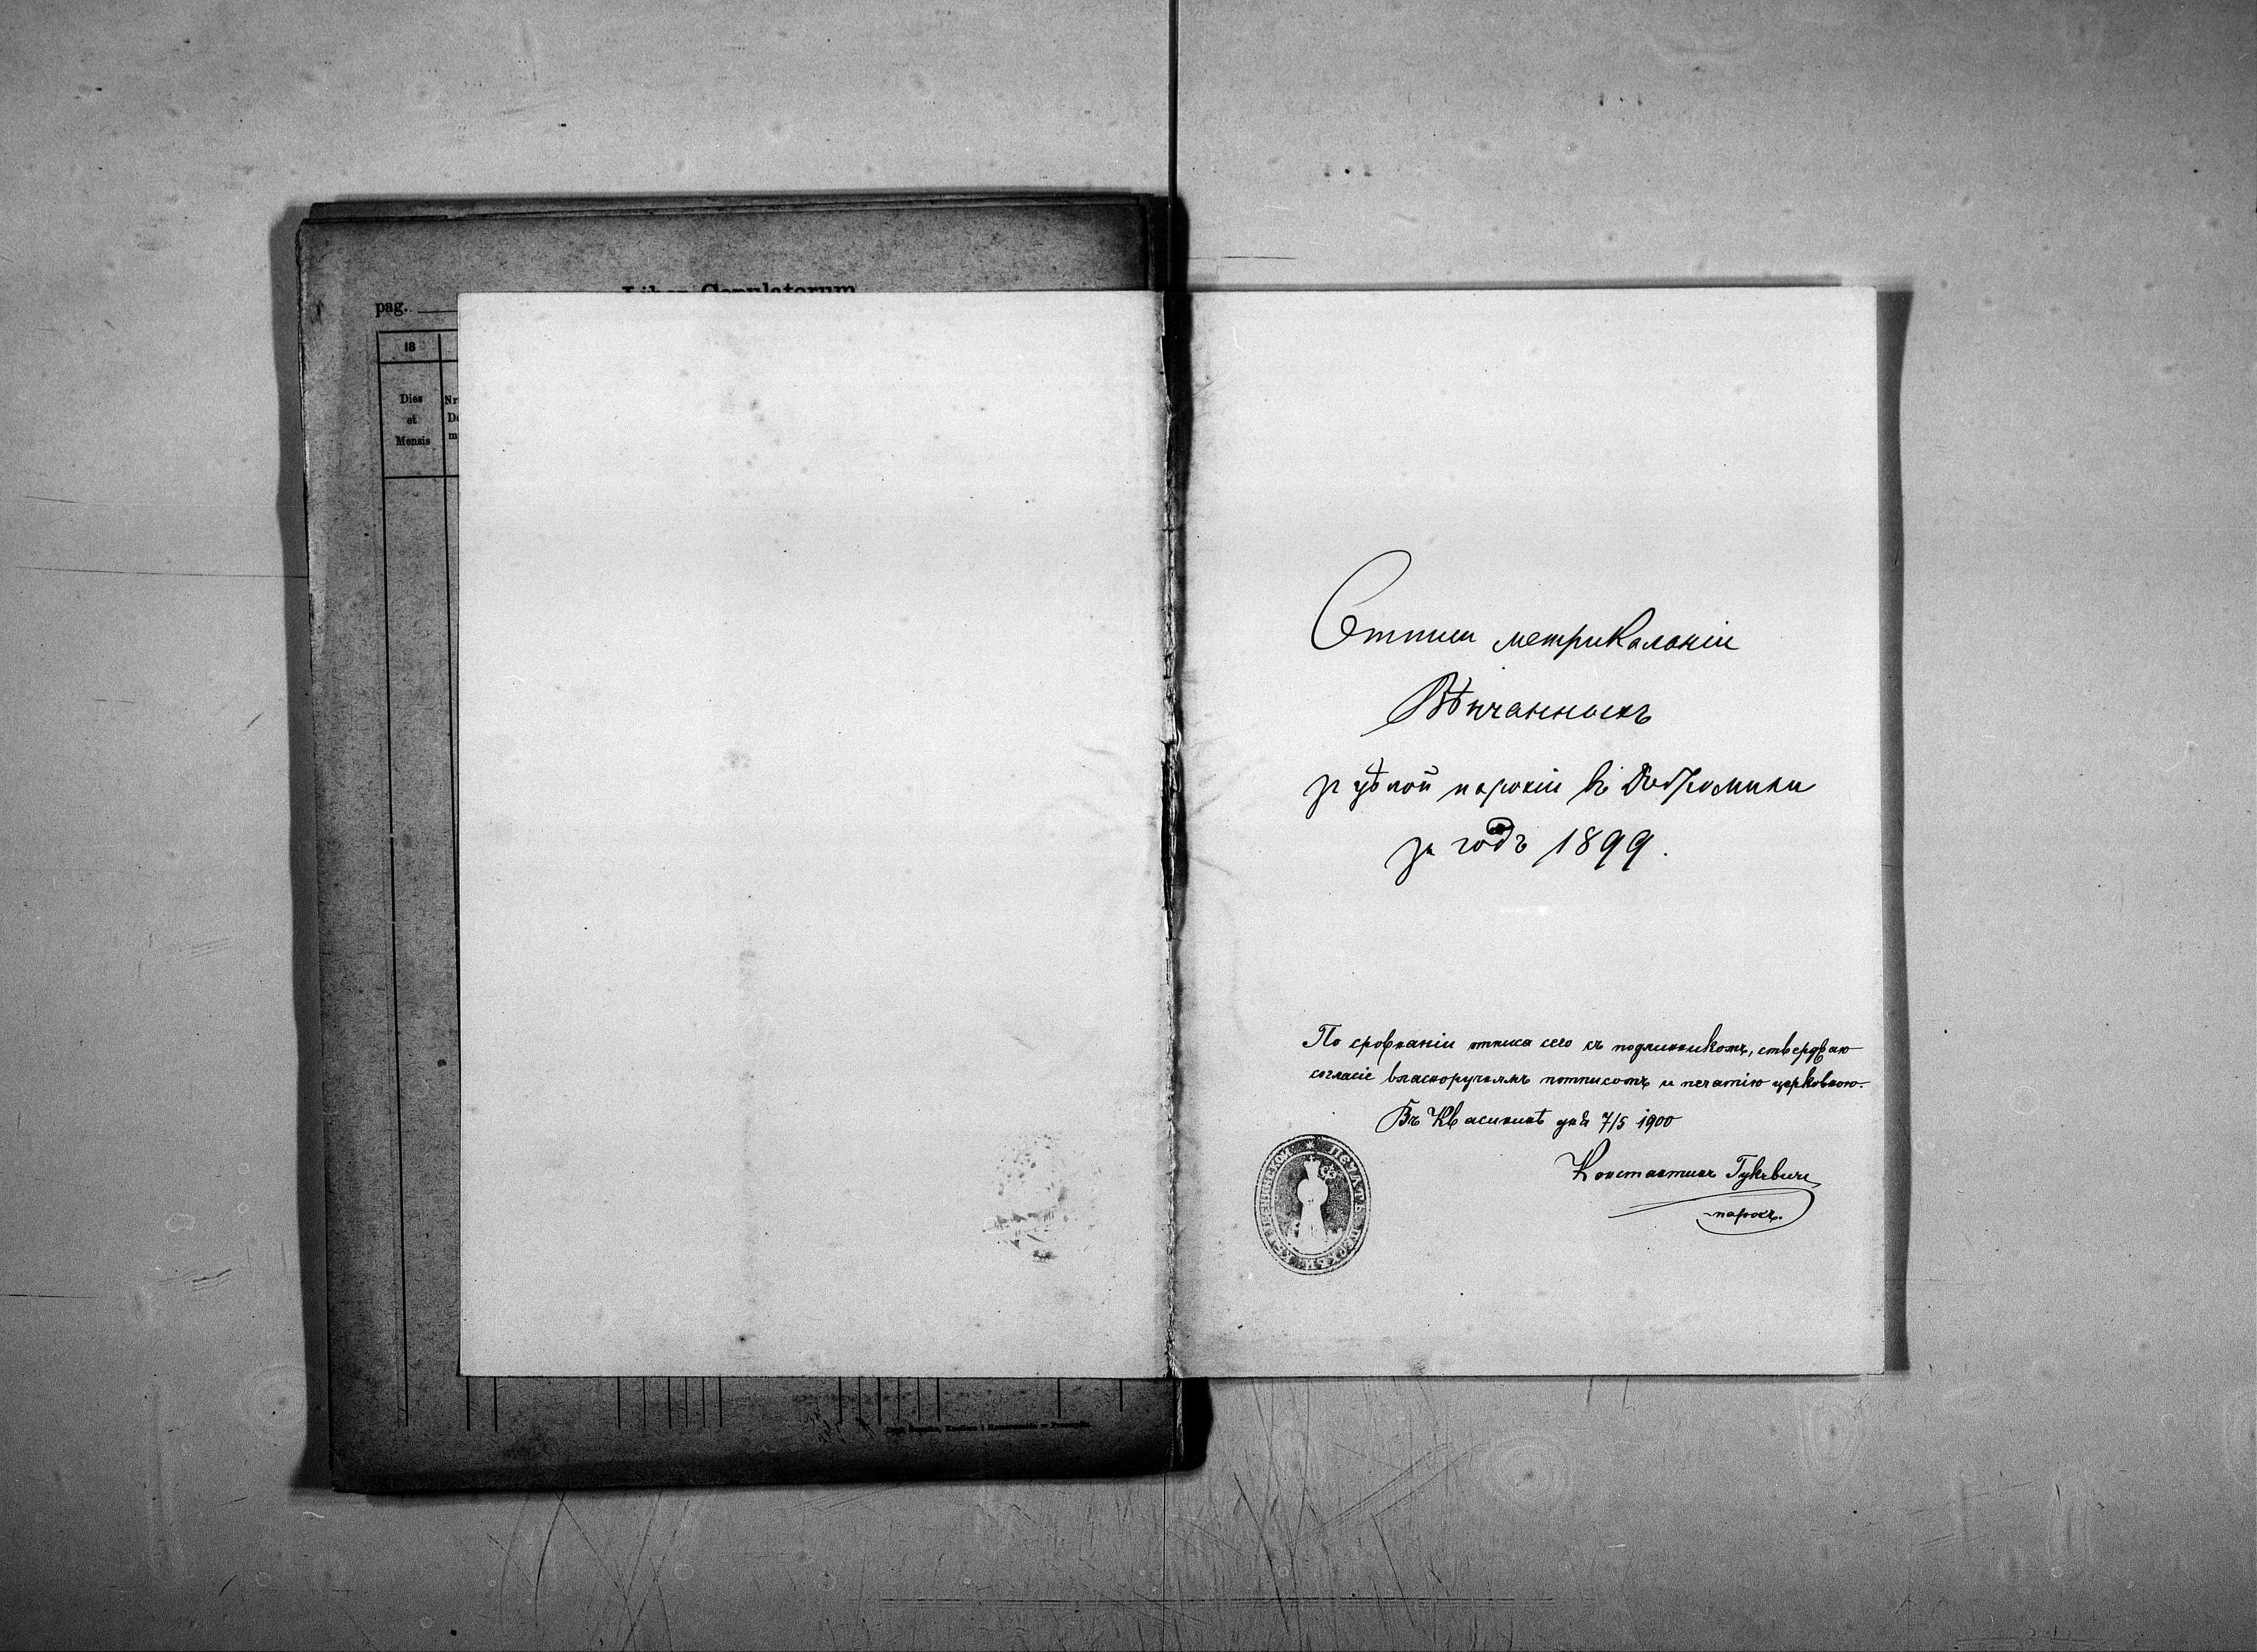 Liber Copulatorum
pag.
18
Dies
et
Mensis
Отписи метрикальніи
Вѣнчанныхъ
зъ цѣлой парохіи въ Добромили
за годъ 1899.
По сровнаніи отписа сего съ подлинникомъ, ствердваю
согласіе власноручнымъ потписомъ и печатію церковною.
Въ Квасининѣ дня 7/5 1900
Константинъ
парохъ.